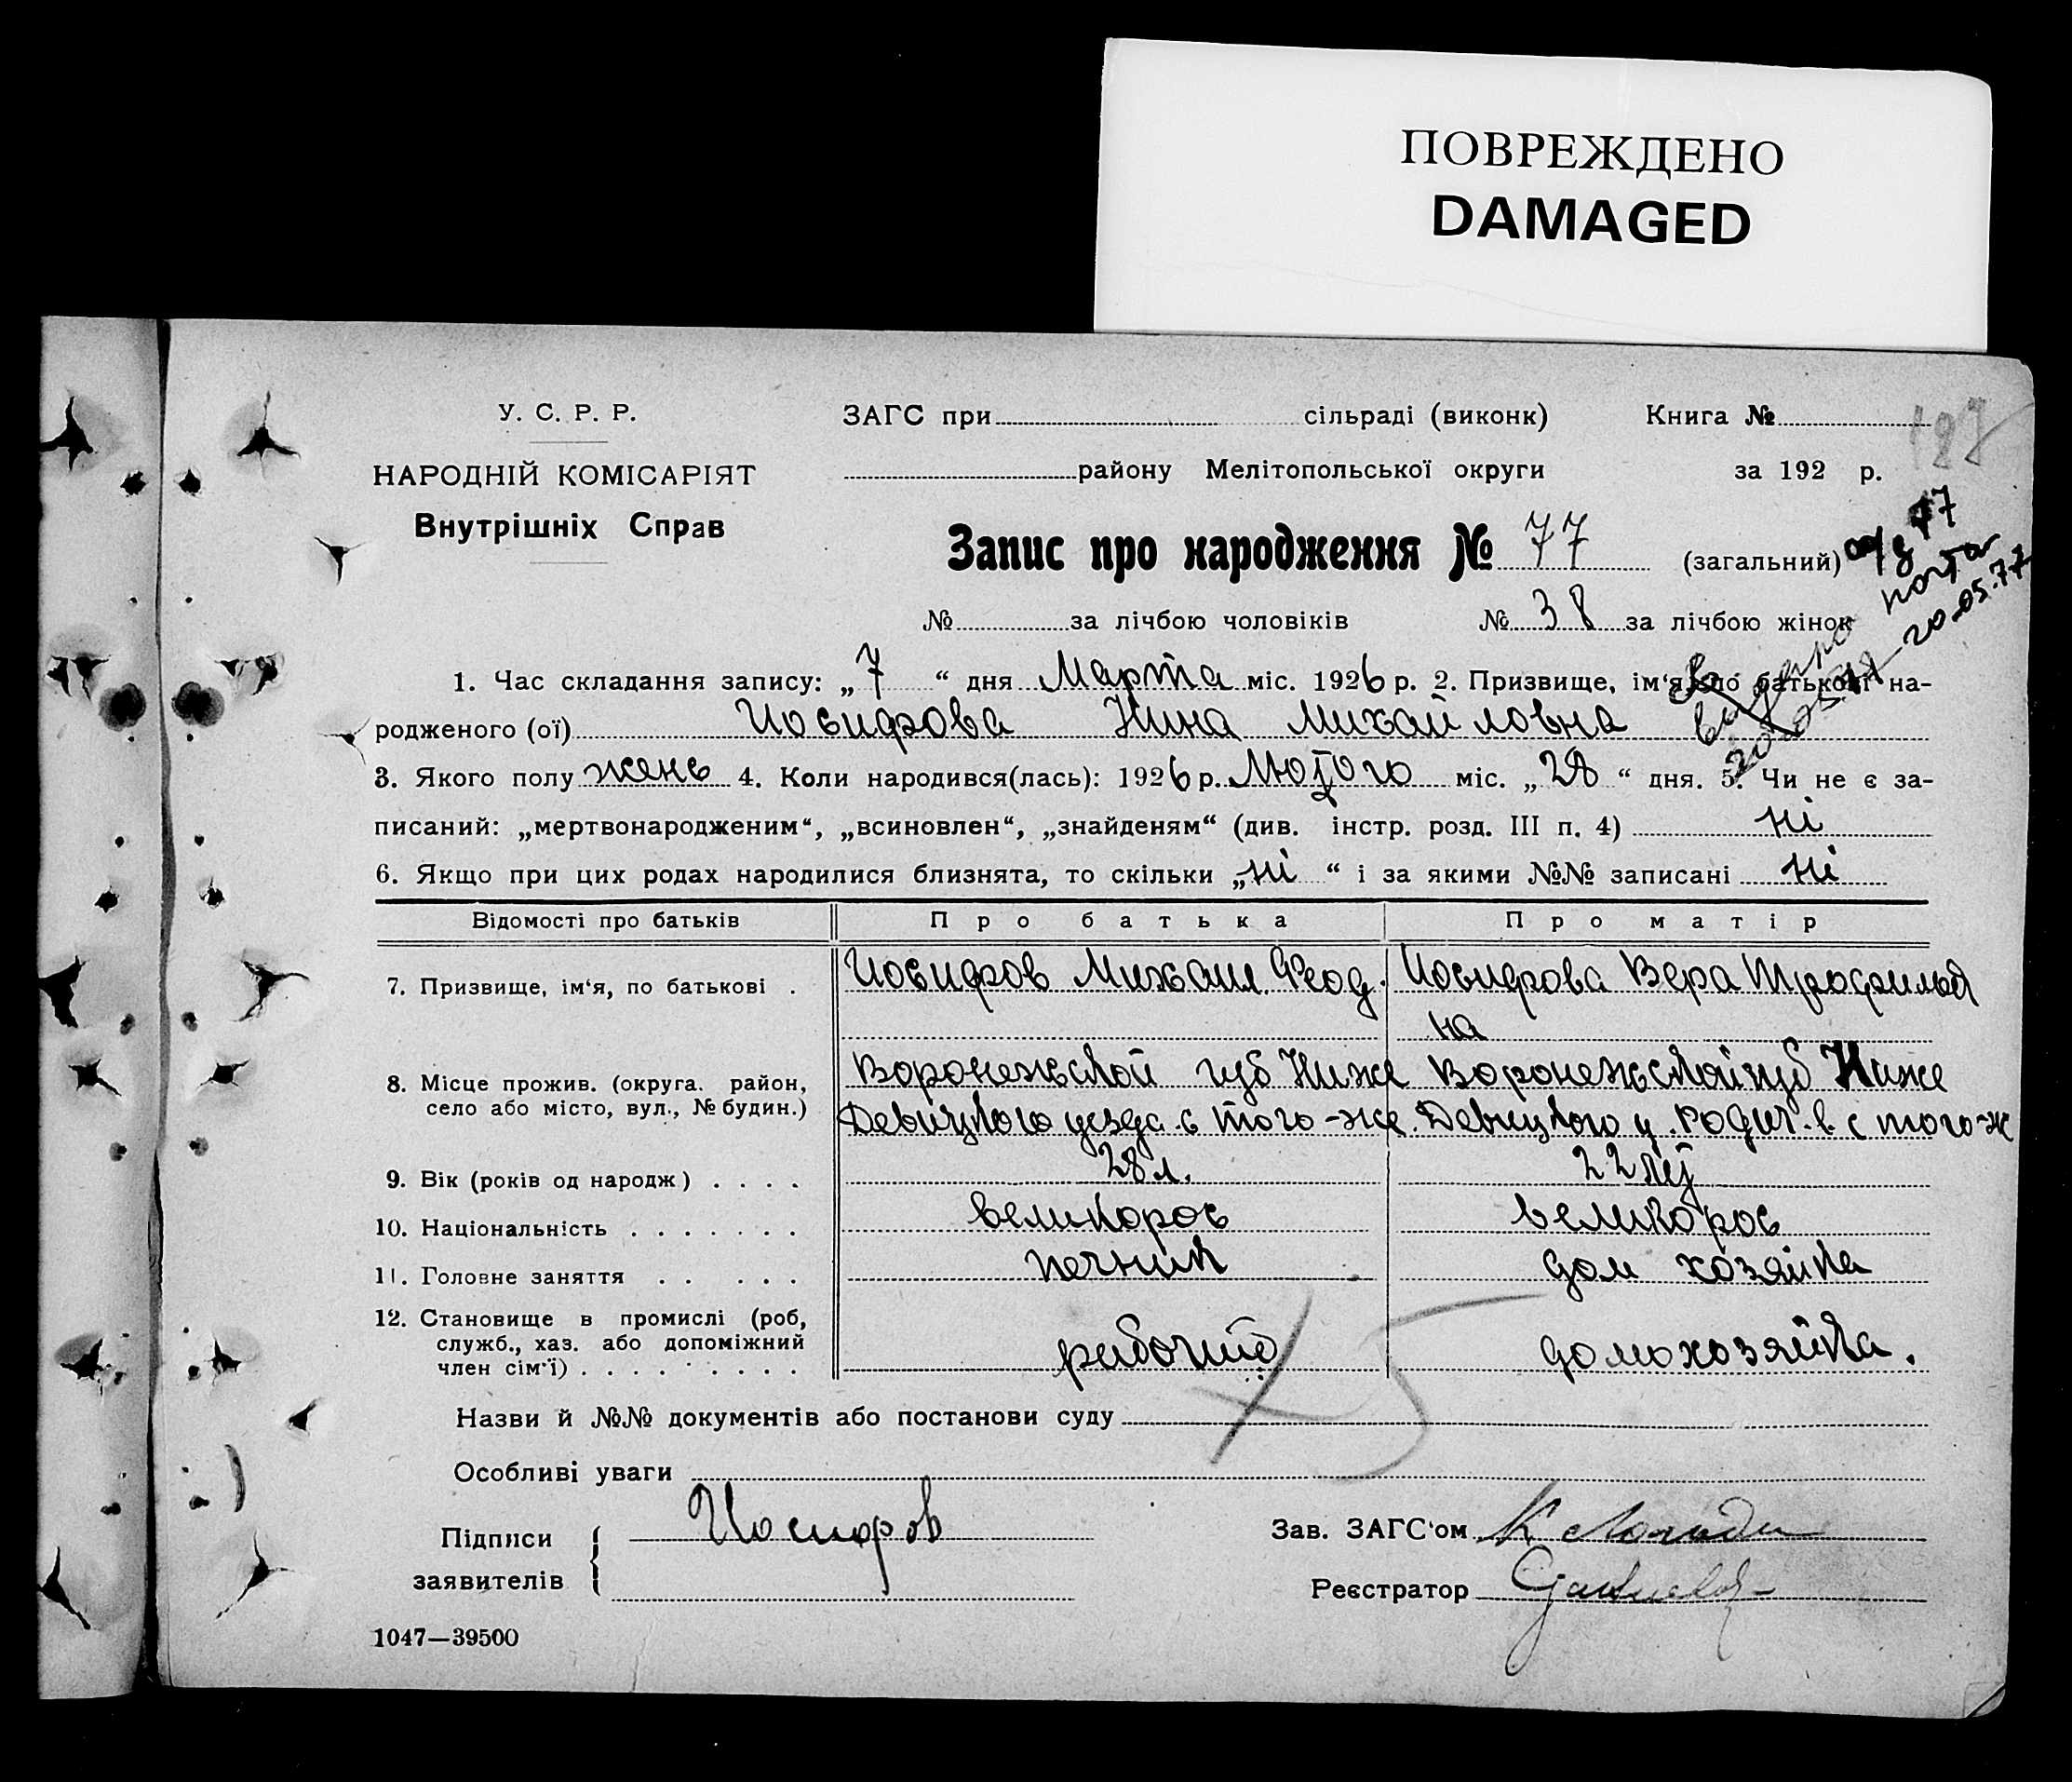 ПОВРЕЖДЕНО
DAMAGED
У. С. Р. Р.
НАРОДНІЙ КОМІСАРІЯТ
Внутрішніх Справ
ЗАГС при сільраді (виконк) Книга №
187
району Мелітопольської округи за 192 р.
Запис про народження № 77 (загальний)
№ за лічбою чоловіків № 38 за лічбою жінок
почта
20.05.77
видано
1. Час складання запису: „7“ дня Марта міс. 1926 р. 2. Призвище, ім‘я, по батькові на-
родженого (ої) Иосифова Нина Михайловна
3. Якого полу жень 4. Коли народився(лась): 1926 р. Лютого міс. „28“ дня. 5. Чи не є за-
писаний: „мертвонародженим“, „всиновлен“, „знайденям“ (див. інстр. розд. III п. 4) ні
6. Якщо при цих родах народилися близнята, то скільки „ні“ і за якими №№ записані ні
Відомості про батьків Про батька Про матір
7. Призвище, ім‘я, по батькові . Иосифов Михаил Феод. Иосифова Вера Трофильов
на
8. Місце прожив. (округа. район, Воронежской губ Ниже Воронежской губ Ниже
село або місто, вул., № будин.) Девицкого уезда с того-же. Девицкого у. Родит. в с того-ж
9. Вік (років од народж) . . . . 28 л. 22 лет
10. Національність . . . . . . . великорос великорос
11. Головне заняття . . . . . печник дом хозяйка
12. Становище в промислі (роб,
служб., хаз. або допоміжний
член сім‘ї) . . . . . . . . . рабочий домохозяйка.
75
Назви й №№ документів або постанови суду
Особливі уваги
Підписи
заявителів
Иосифов
Зав. ЗАГС‘ом
Реєстратор
1047—39500